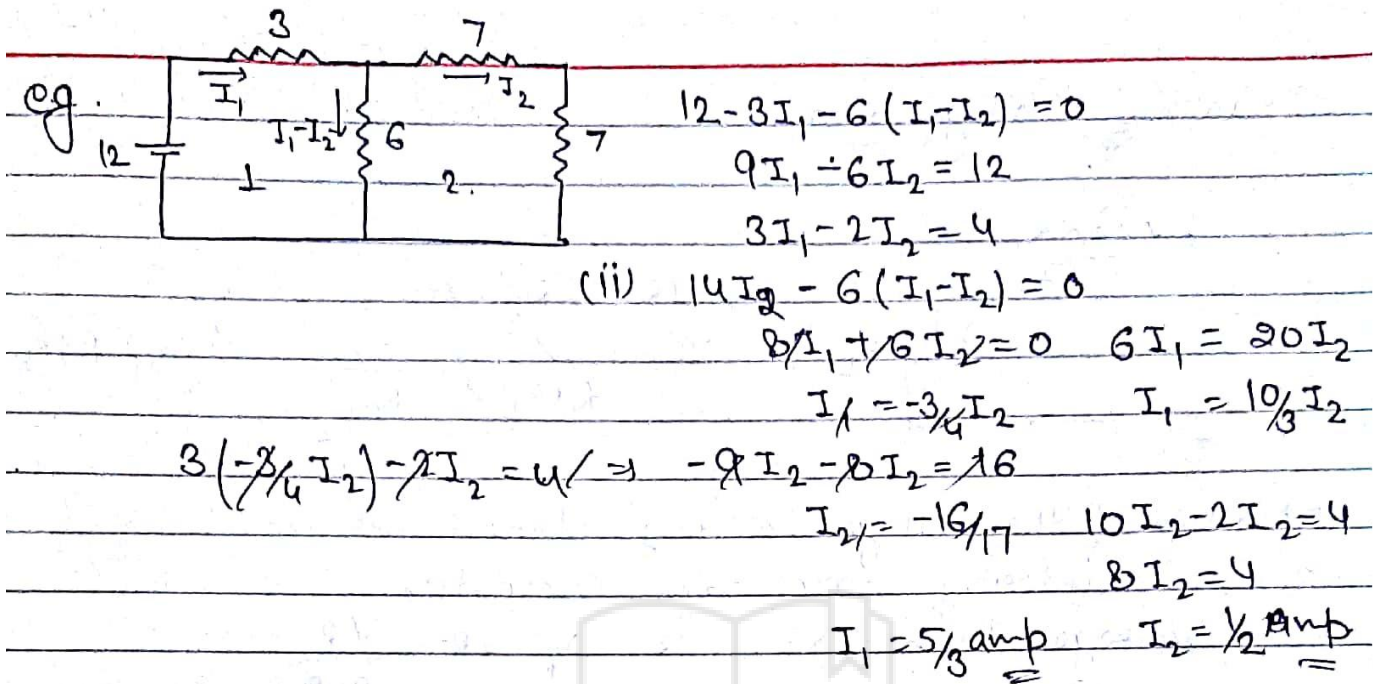 3 7
eg.
I₁ I₂
I₁-I₂ 6 7
12
1 2.
12-3I₁-6(I₁-I₂)=0
9I₁-6I₂=12
3I₁-2I₂=4
(ii) 14I₂-6(I₁-I₂)=0
8I₁+6I₂=0 6I₁=20I₂
I₁=-3/4I₂ I₁=10/3I₂
3(-3/4I₂)-2I₂=4 ⇒ -9I₂-8I₂=16
I₂=-16/17 10I₂-2I₂=4
8I₂=4
I₁=5/3 amp I₂=1/2 Amp